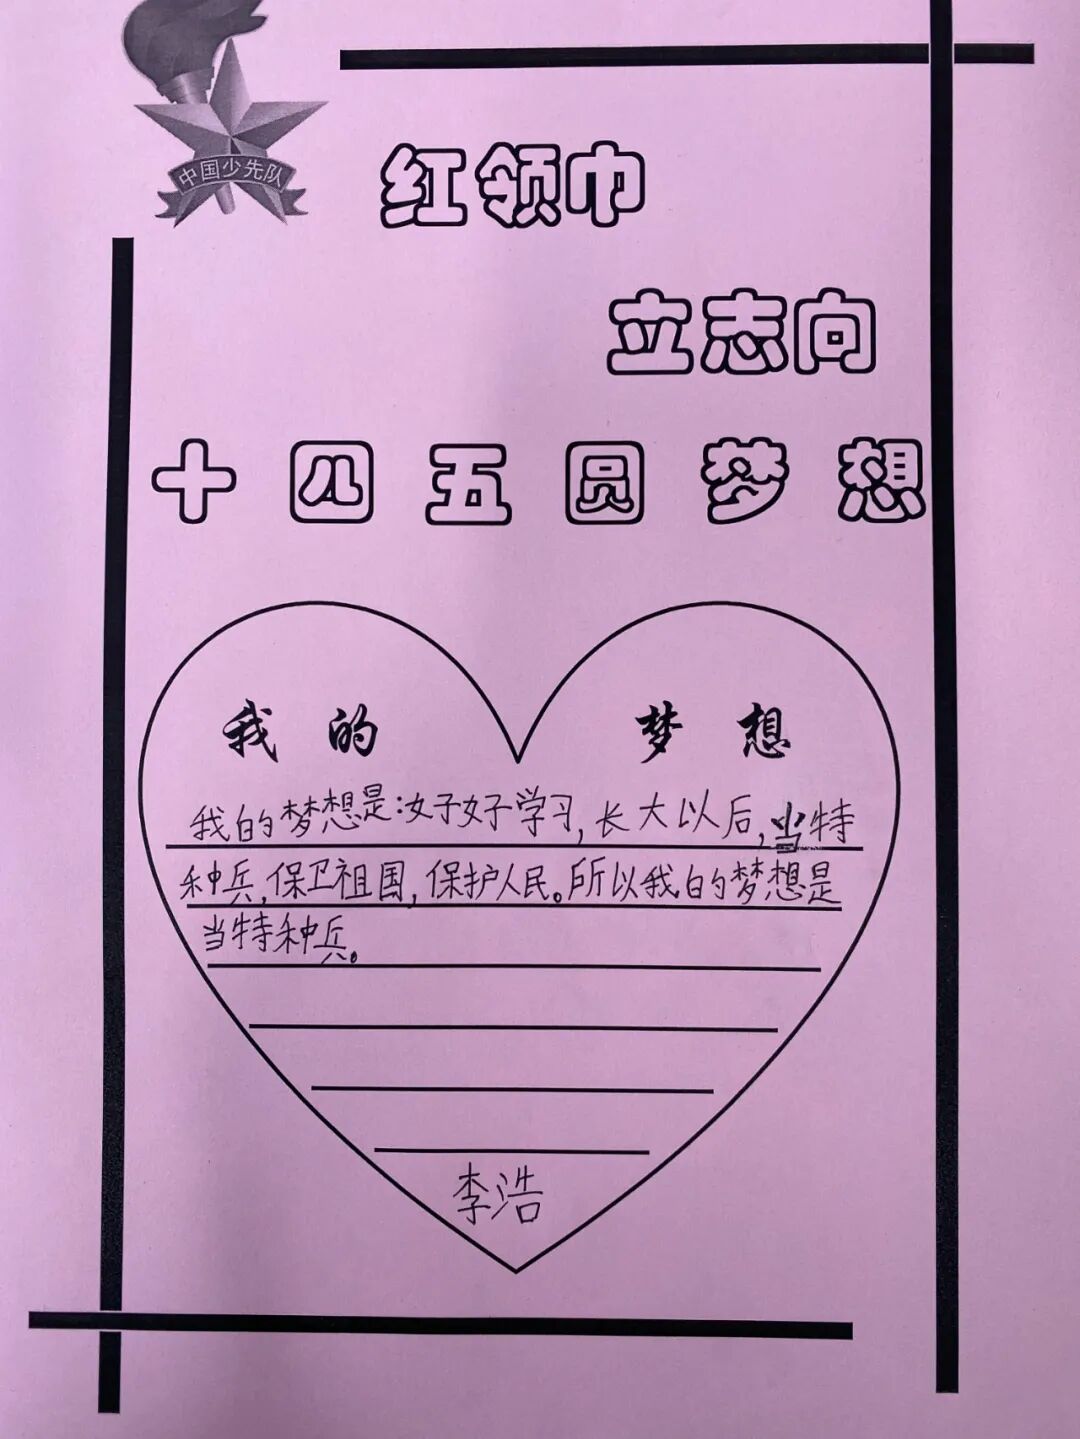 中国少先队
红领巾
立志向
十四五圆梦想
我的 梦想
我的梦想是:好好学习,长大以后,当特
种兵,保卫祖国,保护人民。所以我的梦想是
当特种兵。
李浩